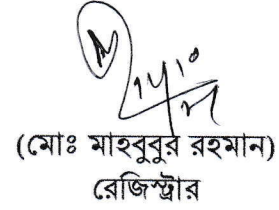 (মোঃ মাহবুবুর রহমান)
রেজিস্ট্রার